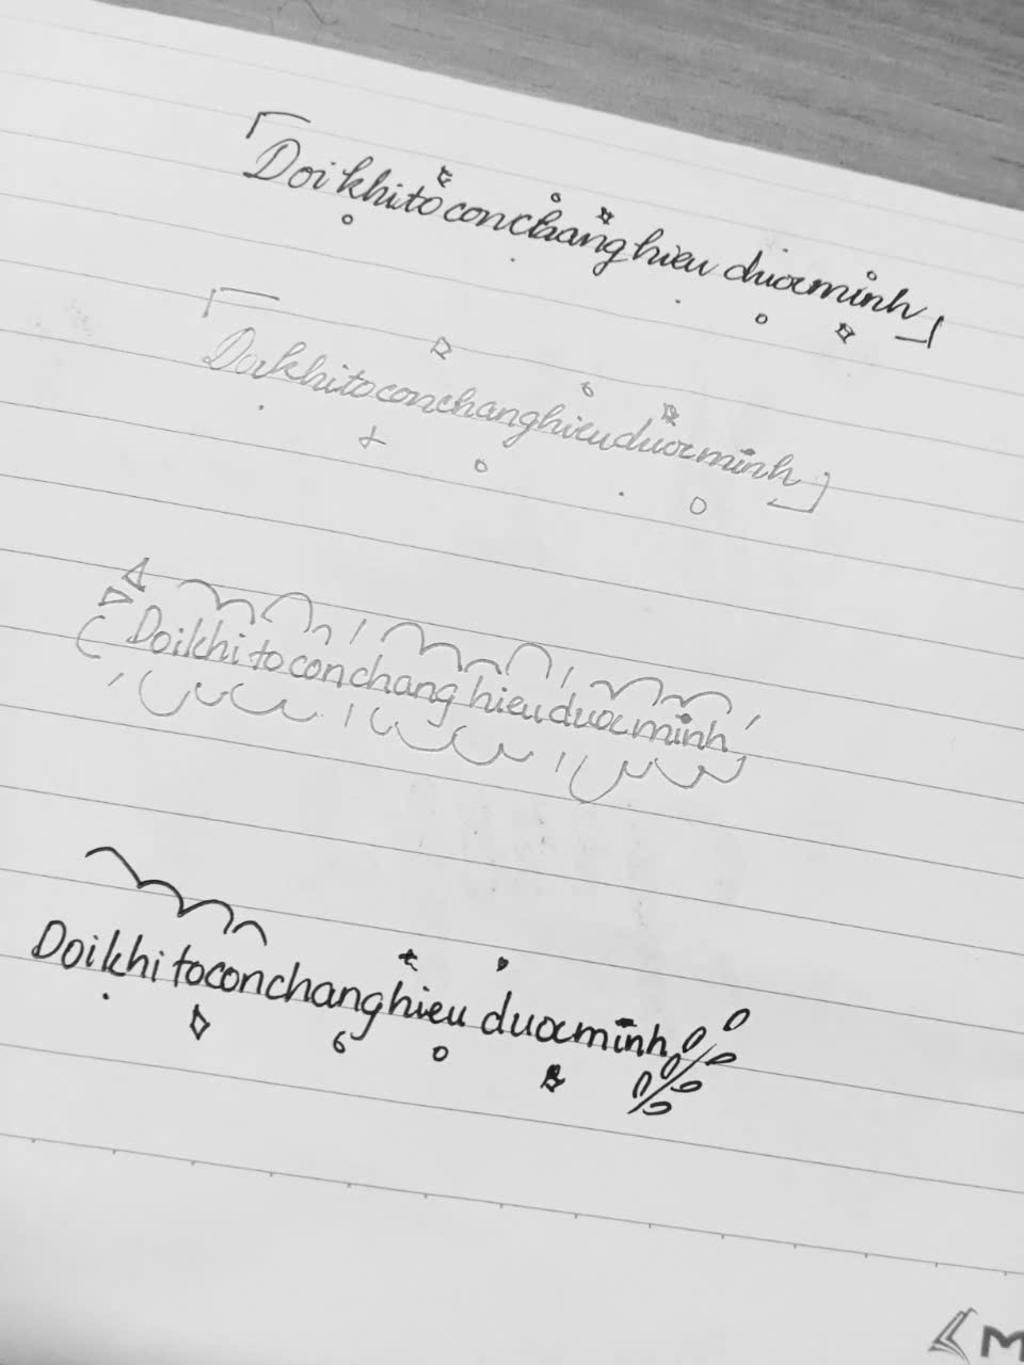 Doi khi to con chang hieu duoc minh
Doi khi to con chang hieu duoc minh
Doi khi to con chang hieu duoc minh
Doi khi to con chang hieu duoc minh
M